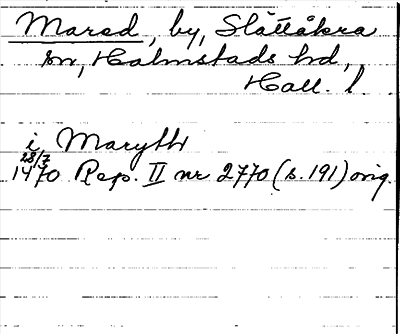 Marad, by, Slättåkra
sn, Halmstads hd,
Hall. l.
i Maryth
28/7
1470 Rep. II nr 2770 (s. 191) orig.